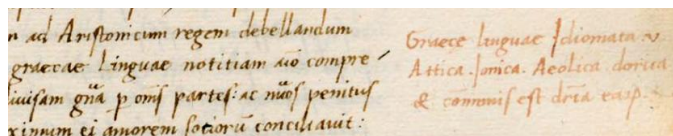 n ad Aristonicum regem debellandum
graecae linguae notitiam aīo compre-
iuisam gn̄a p om̄s partes: ac nūos penitus
xinnum ei amorem sotiorū conciliauit:
Graece linguae Idiomata v.
Attica. Ionica. Aeolica. dorica
& com̄onis est dr̄ia eaꝝ.